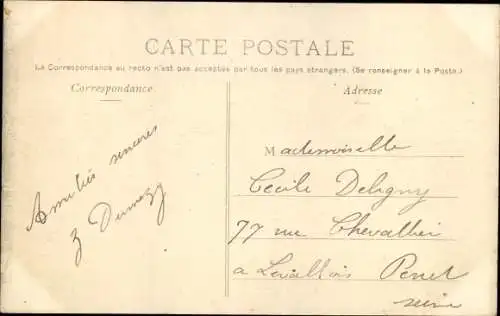 CARTE POSTALE
La Correspondance au recto n'est pas acceptée par tous les pays étrangers. (Se renseigner à la Poste.)
Correspondance
Adresse
Amitiés sincères
Mademoiselle
Cécile Deligny
77 rue Chevallier
a Levallois Perret
seine